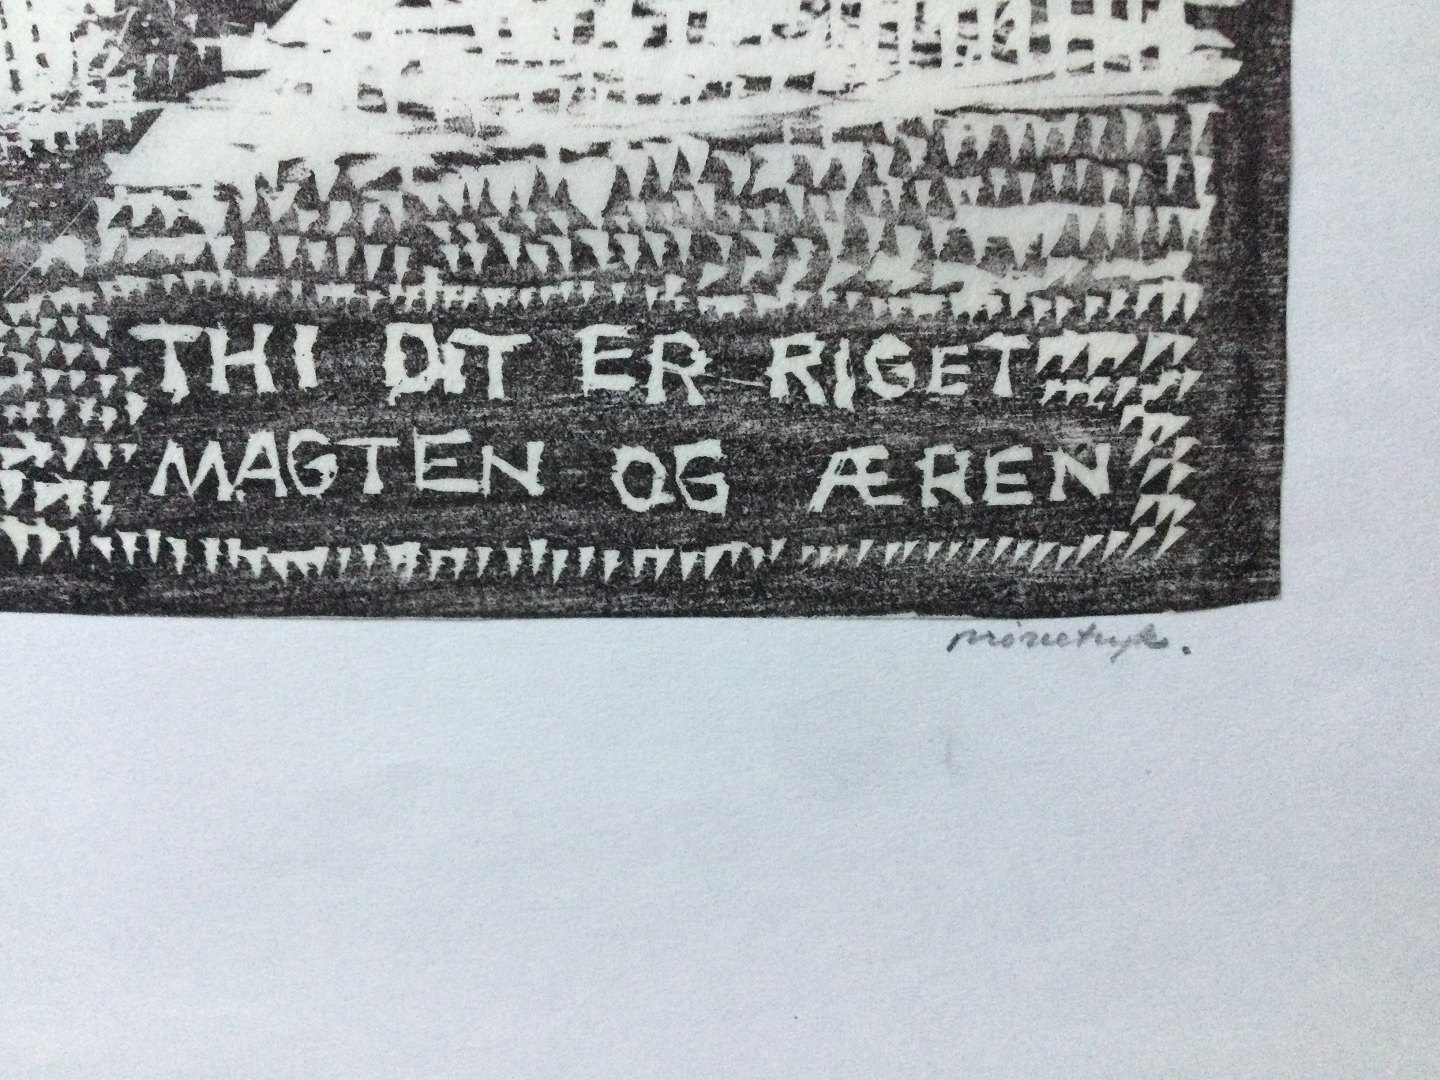 THI DIT ER RIGET
MAGTEN OG ÆREN
prøvetryk.